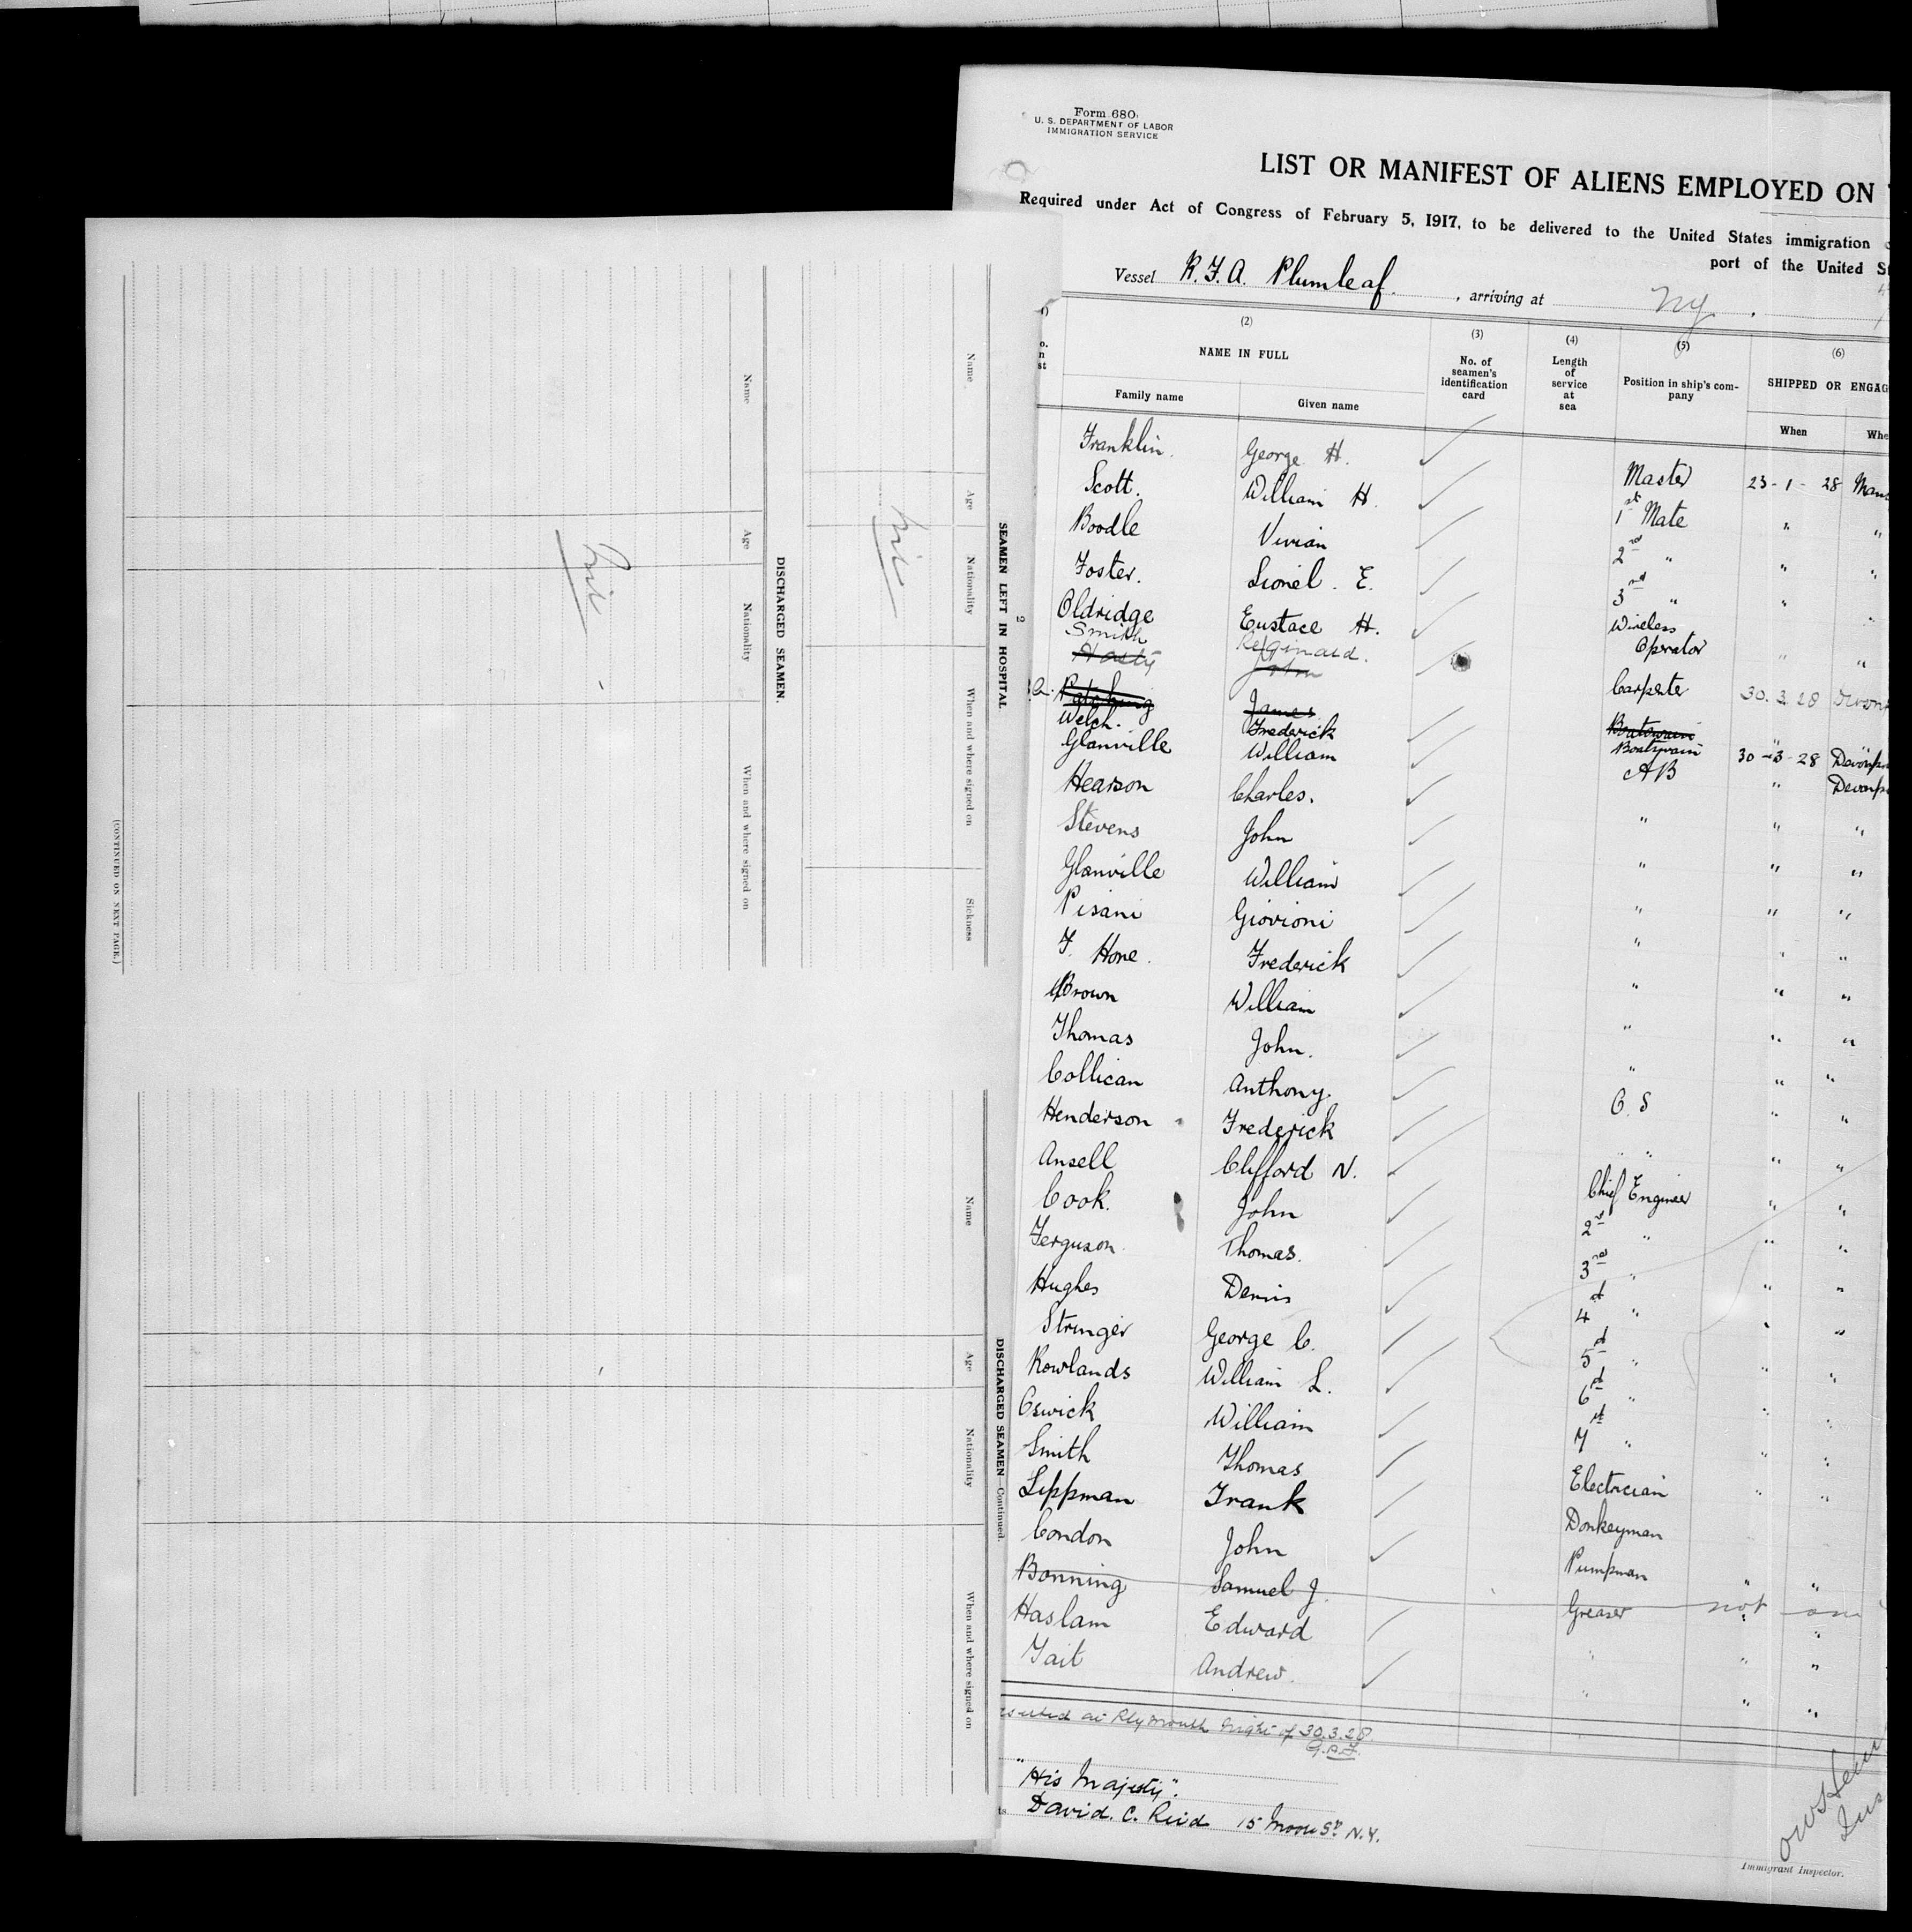 Form 680
U. S. DEPARTMENT OF LABOR
IMMIGRATION SERVICE
LIST OR MANIFEST OF ALIENS EMPLOYED ON
Required under Act of Congress of February 5, 1917, to be delivered to the United States immigration
port of the United
Vessel R.F.A. Plumleaf , arriving at NY.
(2) (3) (4) (5) (6)
NAME IN FULL
No. of seamen's identification card
Length of service at sea
Position in ship's company
SHIPPED OR
Family name Given name When
Franklin. George H. Master 23-1-28
Scott. William H. 1st Mate " "
Boodle Vivian 2nd " " "
Foster. Lionel. E. 3rd " " "
Oldridge Eustace H. Wireless Operator " "
Smith Reginald.
Hasty John Carpenter 30.3.28
James Boatswain " "
Welch. Frederick Boatswain 30-3-28
Glanville William AB "
Hearson Charles. " " "
Stevens John " " "
Glanville William " " "
Pisani Giovioni " " "
F. Hone. Frederick " " "
Brown William " " "
Thomas John. " " "
Collican Anthony. O.S " "
Henderson Frederick " " " "
Ansell Clifford N. Chief Engineer " "
Cook. John 2nd " " "
Ferguson Thomas. 3rd " " "
Hughes Denis 4 " " "
Stringer George C. 5 " " "
Rowlands William L. 6 " " "
Oswick William 7 " " "
Smith Thomas Electrician " "
Lippman Frank Donkeyman
Condon John Pumpman " "
Bonning Samuel J. Greaser not on
Haslam Edward " " "
Tait Andrew. " " "
at Plymouth night of 30.3.28.
"His Majesty".
David. C. Reid 15 Moore St. N.Y.
Immigrant Inspector.
2
SEAMEN LEFT IN HOSPITAL
Name Age Nationality When and where signed on Sickness
nil
DISCHARGED SEAMEN.
Name Age Nationality When and where signed on
nil
(CONTINUED ON NEXT PAGE.)
DISCHARGED SEAMEN—Continued.
Name Age Nationality When and where signed on